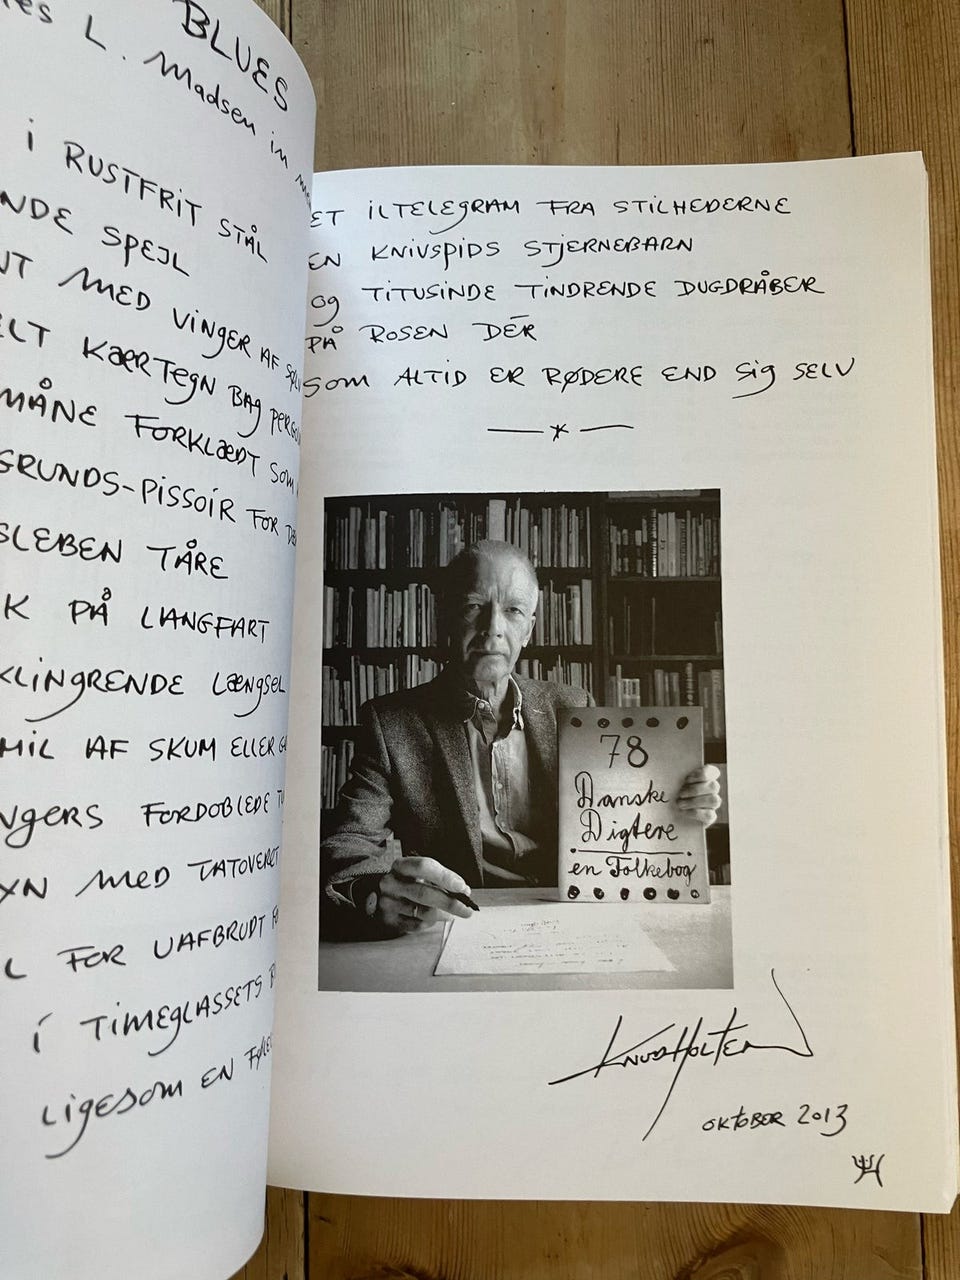 BLUES
L. Madsen in
i RUSTFRIT STÅL
SPEJL
MED VINGER AF
KÆRTEGN BAG
MÅNE FORKLÆDT SOM
GRUNDS-PISSOIR FOR
TÅRE
PÅ LANGFART
KLINGRENDE LÆNGSEL
MIL AF SKUM ELLER
FORDOBLEDE
MED TATOVERET
FOR UAFBRUDT
i TIMEGLASSETS
LIGESOM EN
ET ILTELEGRAM FRA STILHEDERNE
EN KNIVSPIDS STJERNEBARN
og TITUSINDE TINDRENDE DUGDRÅBER
PÅ ROSEN DÉR
SOM ALTID ER RØDERE END Sig SELV
78
Danske
Digtere
en Folkebog
KNUD HOLTEN
OKTOBER 2013